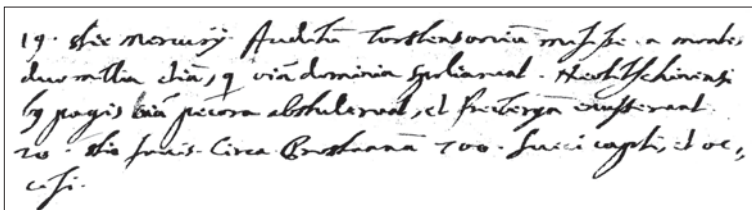 19. die Mercurij. Auditū Torstensoniū misisse a montes
duo millia etiā, q viā dominia spoliarunt. Neotitscheinensi
by pagis oīa pecora abstulerunt, et Freibergā eusserunt.
20. die Jovis. Circa Prostannā 700. Sueci capti, et oc,,
cisi.